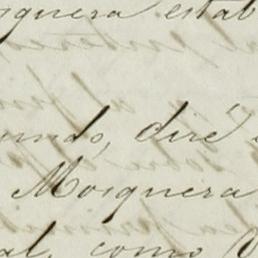 squera estab
undo, diré
Mosquera
al, como